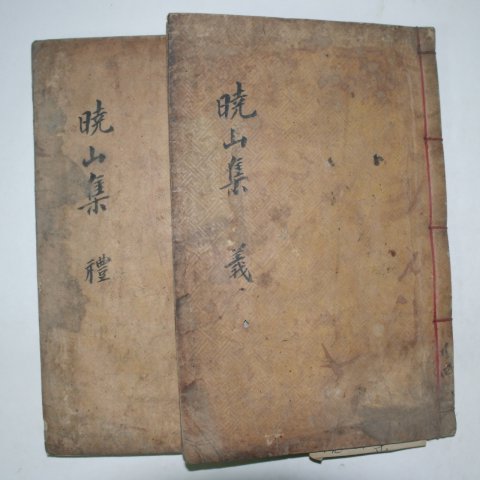 曉山集 禮
曉山集 義